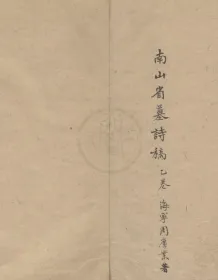 南山省墓詩稿 乙卷 海寧周廣業著